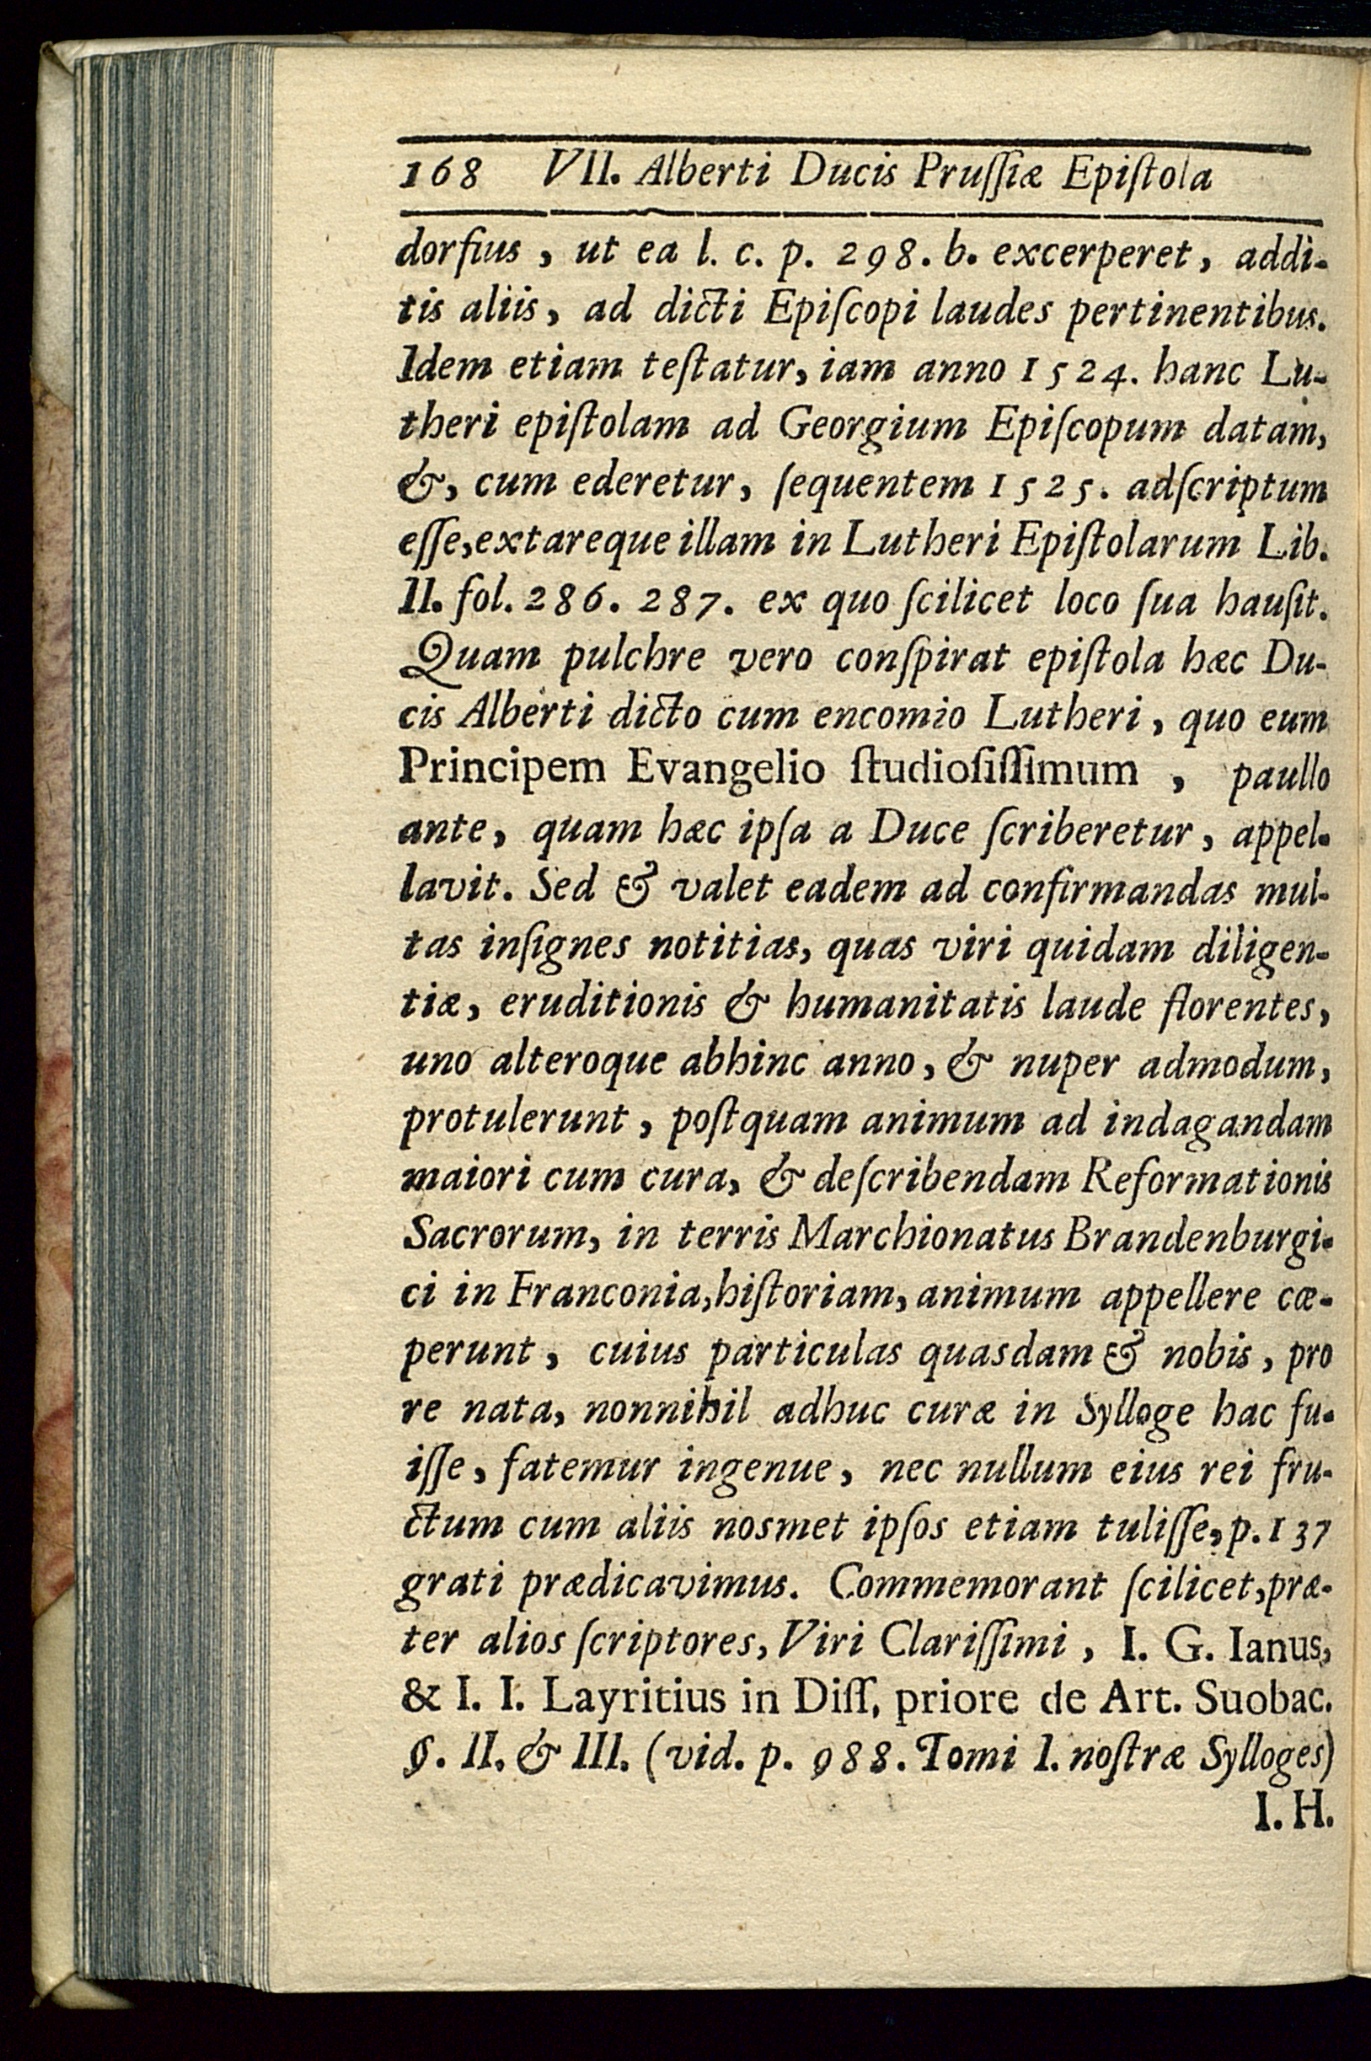 168 VII. Alberti Ducis Pruſſiæ Epiſtola
dorfius, ut ea l. c. p. 298. b. excerperet, addi-
tis aliis, ad dicti Epiſcopi laudes pertinentibus.
Idem etiam teſtatur, iam anno 1524. hanc Lu-
theri epiſtolam ad Georgium Epiſcopum datam,
&, cum ederetur, ſequentem 1525. adſcriptum
eſſe, extareque illam in Lutheri Epiſtolarum Lib.
II. fol. 286. 287. ex quo ſcilicet loco ſua hauſit.
Quam pulchre vero conſpirat epiſtola hæc Du-
cis Alberti dicto cum encomio Lutheri, quo eum
Principem Evangelio ſtudioſiſſimum, paullo
ante, quam hæc ipſa a Duce ſcriberetur, appel-
lavit. Sed & valet eadem ad confirmandas mul-
tas inſignes notitias, quas viri quidam diligen-
tiæ, eruditionis & humanitatis laude florentes,
uno alteroque abhinc anno, & nuper admodum,
protulerunt, poſtquam animum ad indagandam
maiori cum cura, & deſcribendam Reformationis
Sacrorum, in terris Marchionatus Brandenburgi-
ci in Franconia, hiſtoriam, animum appellere cœ-
perunt, cuius particulas quasdam & nobis, pro
re nata, nonnihil adhuc curæ in Sylloge hac fu-
iſſe, fatemur ingenue, nec nullum eius rei fru-
ctum cum aliis nosmet ipſos etiam tuliſſe, p. 137
grati prædicavimus. Commemorant ſcilicet, præ-
ter alios ſcriptores, Viri Clariſſimi, I. G. Ianus,
& I. I. Layritius in Diſſ. priore de Art. Suobac.
§. II. & III. (vid. p. 988. Tomi I. noſtræ Sylloges)
I. H.